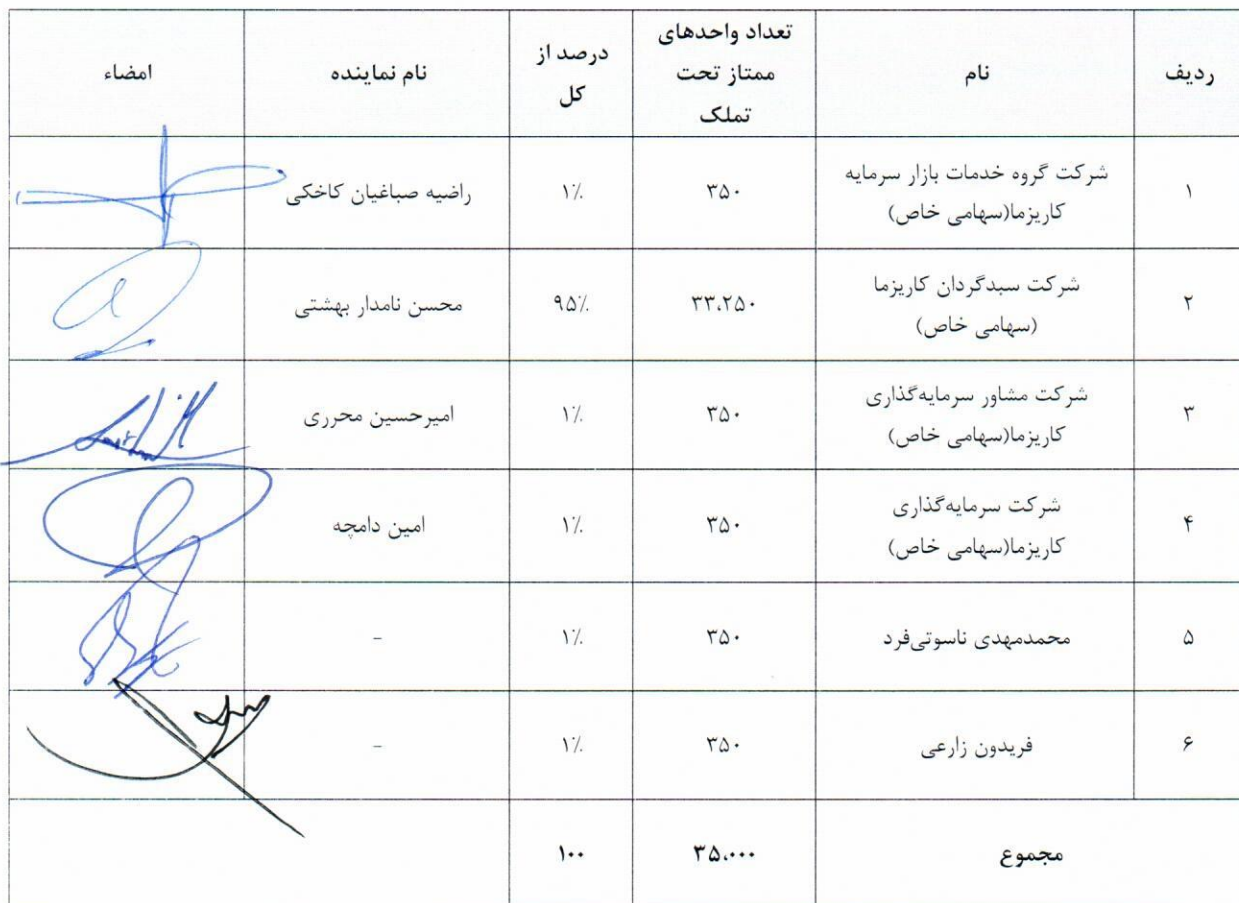 ردیف
نام
تعداد واحدهای
ممتاز تحت
تملک
درصد از
کل
نام نماینده
امضاء
۱
شرکت گروه خدمات بازار سرمایه
کاریزما(سهامی خاص)
۳۵۰
۱٪
راضیه صباغیان کاخکی
۲
شرکت سبدگردان کاریزما
(سهامی خاص)
۳۳،۲۵۰
۹۵٪
محسن نامدار بهشتی
۳
شرکت مشاور سرمایه‌گذاری
کاریزما(سهامی خاص)
۳۵۰
۱٪
امیرحسین محرری
۴
شرکت سرمایه‌گذاری
کاریزما(سهامی خاص)
۳۵۰
۱٪
امین دامچه
۵
محمدمهدی ناسوتی‌فرد
۳۵۰
۱٪
-
۶
فریدون زارعی
۳۵۰
۱٪
-
مجموع
۳۵،۰۰۰
۱۰۰